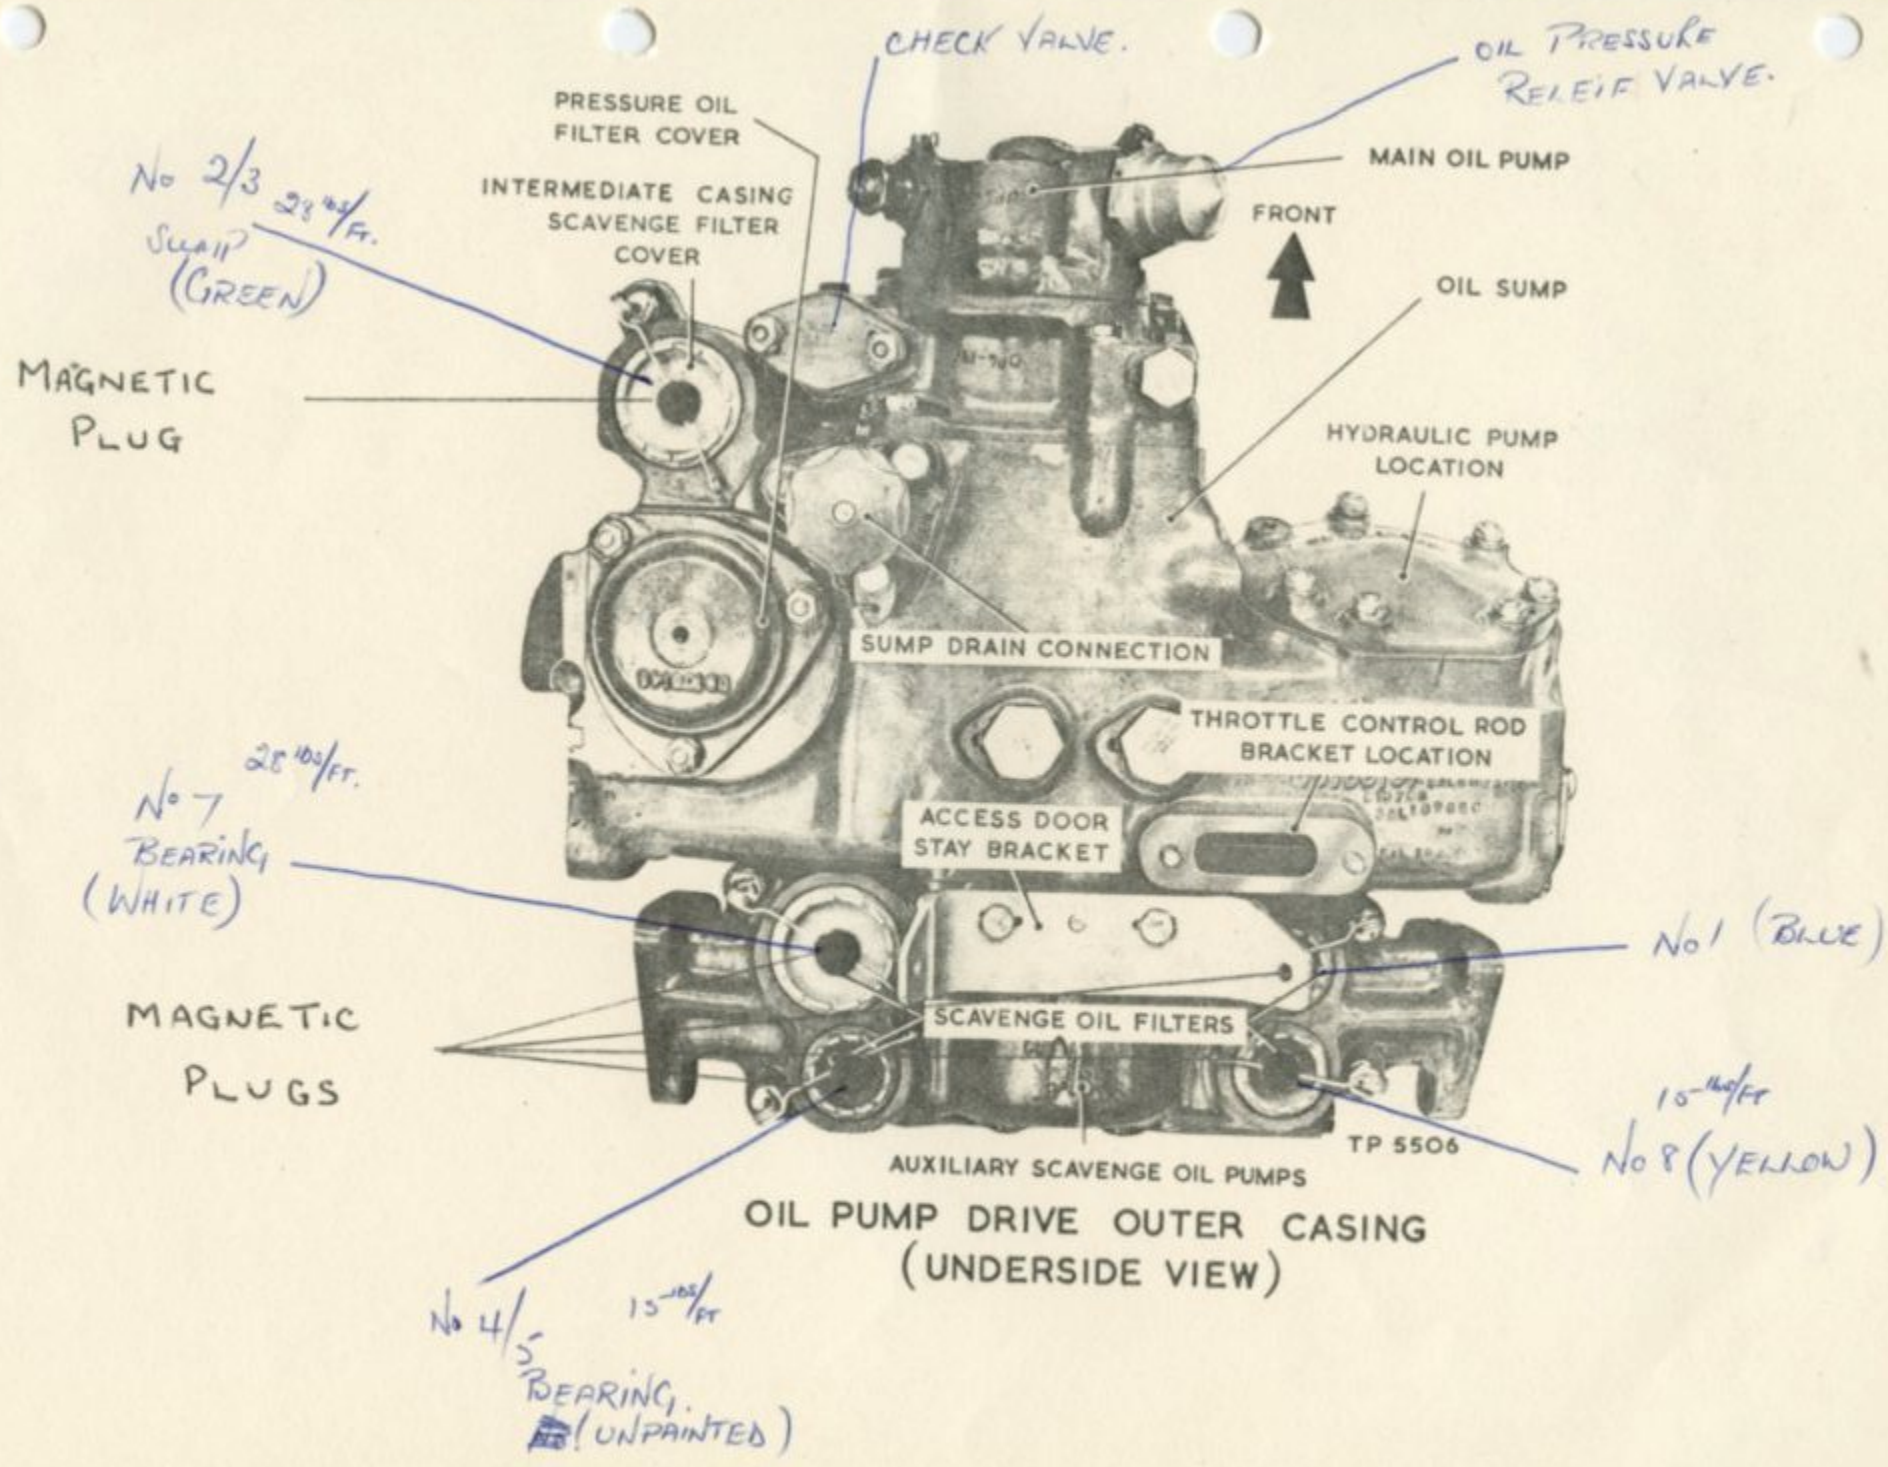 CHECK VALVE.
OIL PRESSURE
RELEIF VALVE.
PRESSURE OIL
FILTER COVER
MAIN OIL PUMP
No 2/3 28 lbs/FT.
SUMP
(GREEN)
INTERMEDIATE CASING
SCAVENGE FILTER
COVER
FRONT
OIL SUMP
MAGNETIC
PLUG
HYDRAULIC PUMP
LOCATION
SUMP DRAIN CONNECTION
THROTTLE CONTROL ROD
BRACKET LOCATION
28 lbs/FT.
No 7
BEARING
(WHITE)
ACCESS DOOR
STAY BRACKET
No 1 (BLUE)
MAGNETIC
PLUGS
SCAVENGE OIL FILTERS
15 lbs/FT
No 8 (YELLOW)
TP 5506
AUXILIARY SCAVENGE OIL PUMPS
OIL PUMP DRIVE OUTER CASING
(UNDERSIDE VIEW)
No 4/5 15 lbs/FT
BEARING.
(UNPAINTED)